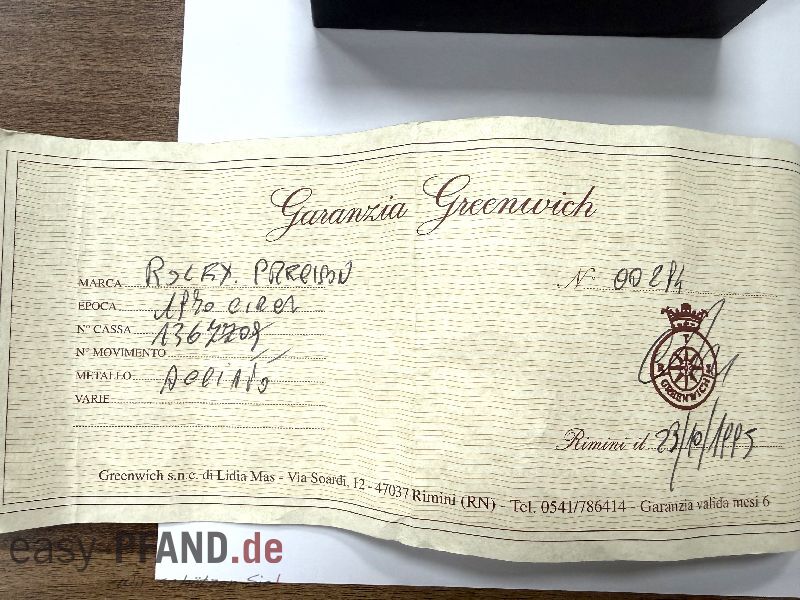 Garanzia Greenwich
MARCA ROLEX. PRECISION
N° 00284
EPOCA CIRCA
N° CASSA
N° MOVIMENTO
METALLO ACCIAIO
VARIE
GREENWICH
Rimini il 23/10/1995
Greenwich s.n.c. di Lidia Mas - Via Soardi, 12 - 47037 Rimini (RN) - Tel. 0541/786414 - Garanzia valida mesi 6
easy-PFAND.de